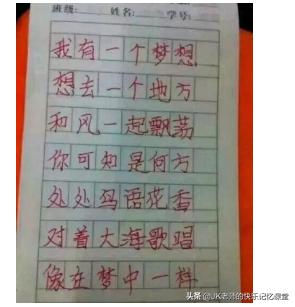 班级: 姓名: 学号:
我有一个梦想
想去一个地方
和风一起飘荡
你可知是何方
处处鸟语花香
对着大海歌唱
像在梦中一样
头条@JK老师的快乐记忆课堂